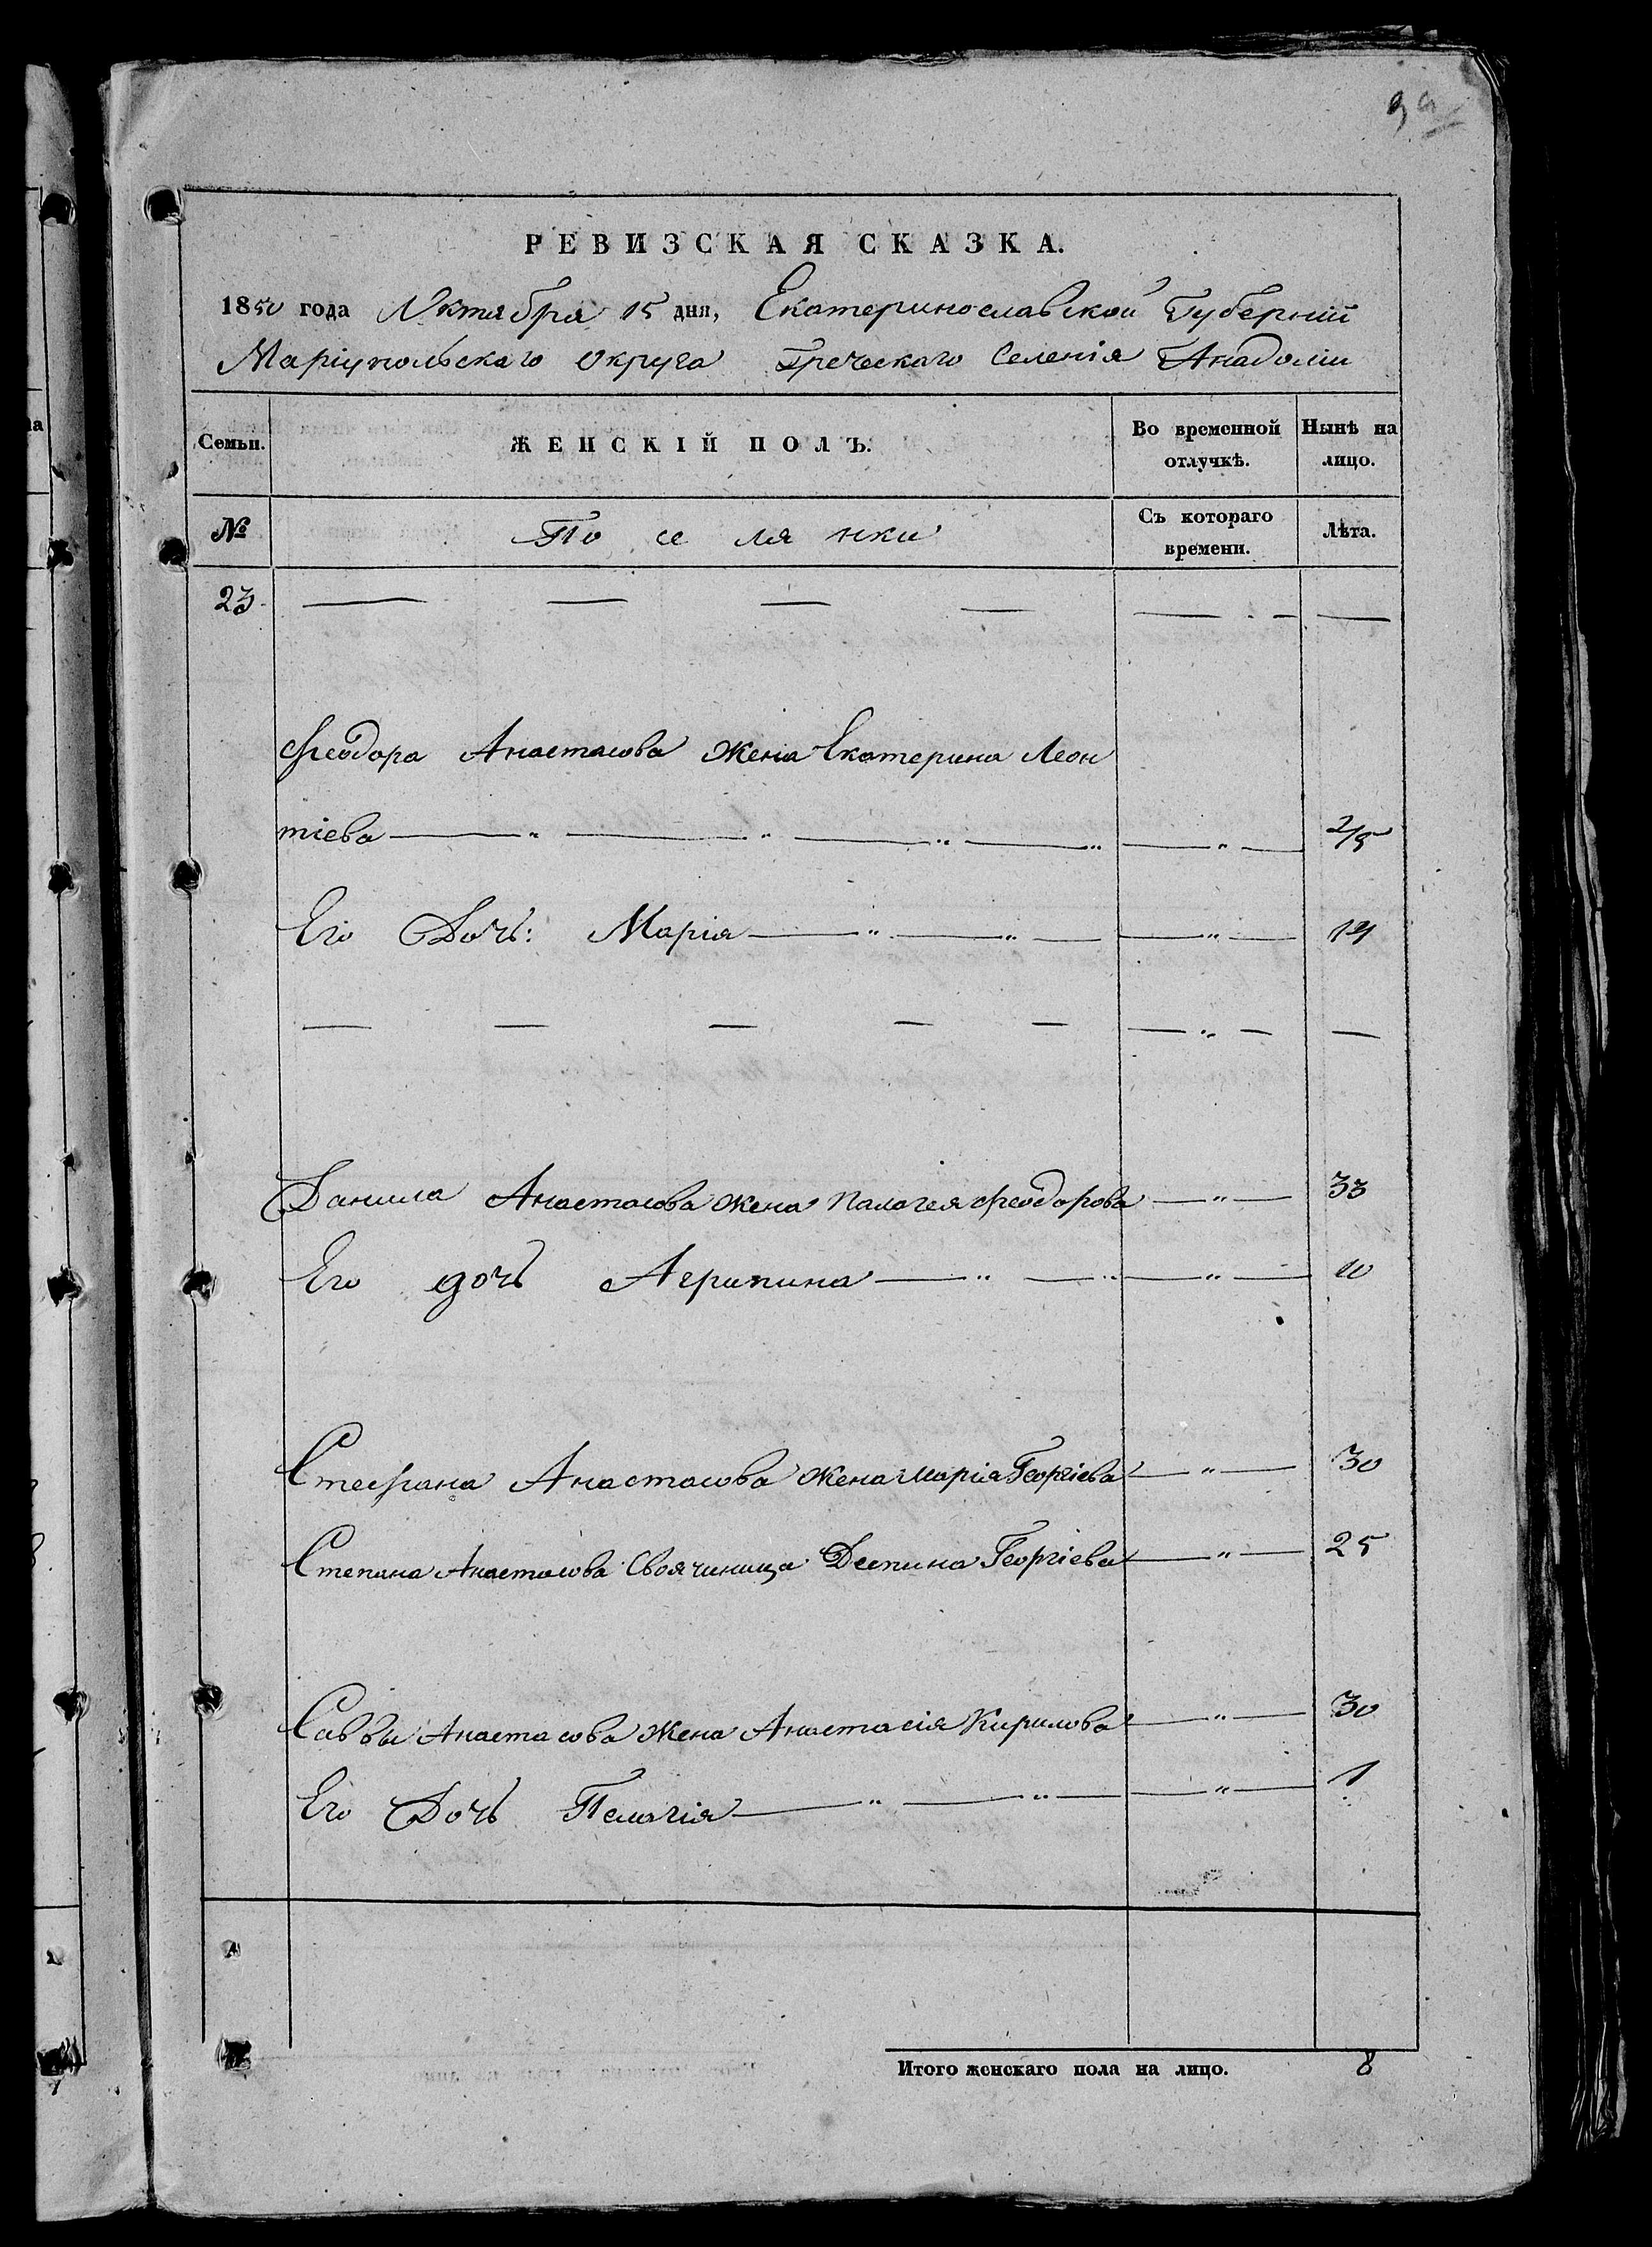 РЕВИЗСКАЯ СКАЗКА.
1850 года Октября 15 дня, Екатеринославской Губерніи
Маріупольскаго Округа Греческаго Селенія Анадоліи
Семьи. ЖЕНСКІЙ ПОЛЪ. Во временной отлучкѣ. Нынѣ на лицо.
№ Поселянки Съ котораго времени. Лѣта.
23
Феодора Анастасова жена Екатерина Леон
тіева
Его Дочь: Марія 14
Данила Анастасова жена Палагея Феодорова 33
Его дочь Агрипина 10
Стефана Анастасова жена Марія Георгіева 30
Степана Анастасова Своячиница Деспина Георгіева 25
Саввы Анастасова жена Анастасія Кирилова 30
Его Дочь Пелагія 1
Итого женскаго пола на лицо. 8